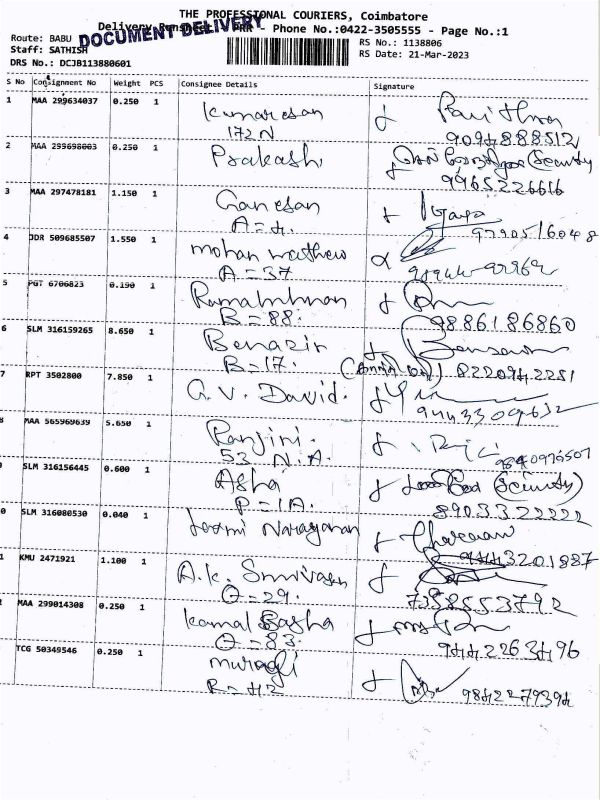 THE PROFESSIONAL COURIERS, Coimbatore
Delivery Runsheet - PRR - Phone No.:0422-3505555 - Page No.:1
DOCUMENT DELIVERY
Route: BABU
RS No.: 1138806
Staff: SATHISH
RS Date: 21-Mar-2023
DRS No.: DCJB113880601
S No Consignment No Weight PCS Consignee Details Signature
1 MAA 299634037 0.250 1 Kumaresan
172 N 9094888512
2 MAA 299698003 0.250 1 Prakash (Security
9965226616
3 MAA 297478181 1.150 1 Ganesan
A = 4. 9790516048
4 JDR 509685507 1.550 1 mohan mathew
A = 37
5 PGT 6706823 0.190 1
B = 88. 9886186860
6 SLM 316159265 8.650 1 Benazir
B = 17. 8220942251
7 RPT 3502800 7.850 1 G. V. David.
9443309632
MAA 565969639 5.650 1 Ranjini.
53 N.A. 9840976507
SLM 316156445 0.600 1 Asha (Security)
P = 1A. 8903322222
0 SLM 316080530 0.040 1 Laxmi Narayanan
9443201887
1 KMU 2471921 1.100 1 A.K. Srinivasan
O = 29. 7358553792
MAA 299014308 0.250 1 Kamal Basha
O = 83. 9442263496
TCG 50349546 0.250 1
R = 42 9842279394